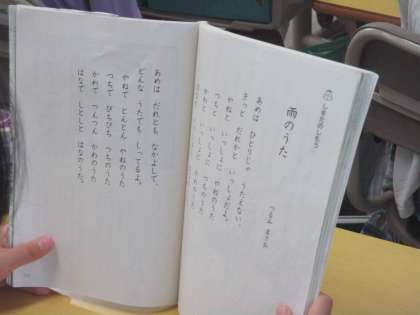 雨のうた
つるみ まさお
あめは ひとりじゃ うたえない、
きっと だれかと いっしょだよ。
やねと いっしょに やねのうた
つちと いっしょに つちのうた
かわと いっしょに かわのうた
あめは だれとも なかよしで、
どんな うたでも しってるよ。
やねで とんとん やねのうた
つちで ぴちぴち つちのうた
かわで つんつん かわのうた
はなで しとしと はなのうた。